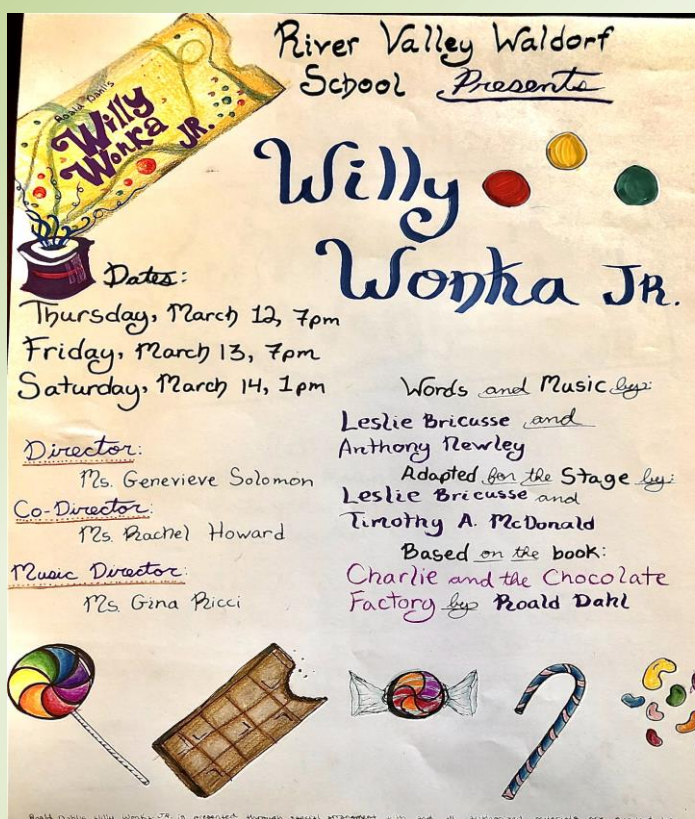 River Valley Waldorf
School Presents
Roald Dahl's
Willy
Wonka
JR.
Willy
Wonka JR.
Dates:
Thursday, March 12, 7pm
Friday, March 13, 7pm
Saturday, March 14, 1pm
Director:
Ms. Genevieve Solomon
Co-Director:
Ms. Rachel Howard
Music Director:
Ms. Gina Ricci
Words and Music by:
Leslie Bricusse and
Anthony Newley
Adapted for the Stage by:
Leslie Bricusse and
Timothy A. McDonald
Based on the book:
Charlie and the Chocolate
Factory by Roald Dahl
Willy Wonka JR. is presented through special arrangement with and all authorized materials are